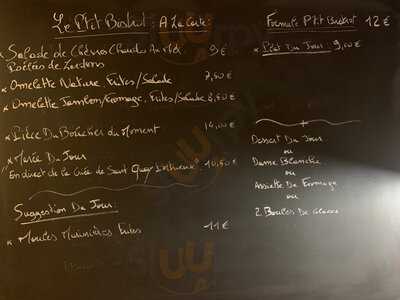 Le P'tit Bistrot A La Carte:
Salade de Chèvres Chauds Au Miel 9€
Poêlées de Lardons
× Omelette Nature, Frites/Salade 7,50€
× Omelette Jambon/Fromage, Frites/Salade 8,50€
× Pièce Du Boucher du Moment 14,00€
× Marée Du Jour
"En direct de la Criée de Saint Quay 10,50€
Suggestion Du Jour:
× Moules Marinières Frites 11€
Formule P'tit Bistrot 12€
× Plat Du Jour 9,00€
+
Dessert Du Jour
ou
Dame Blanche
ou
Assiette De Fromage
ou
2 Boules De Glaces